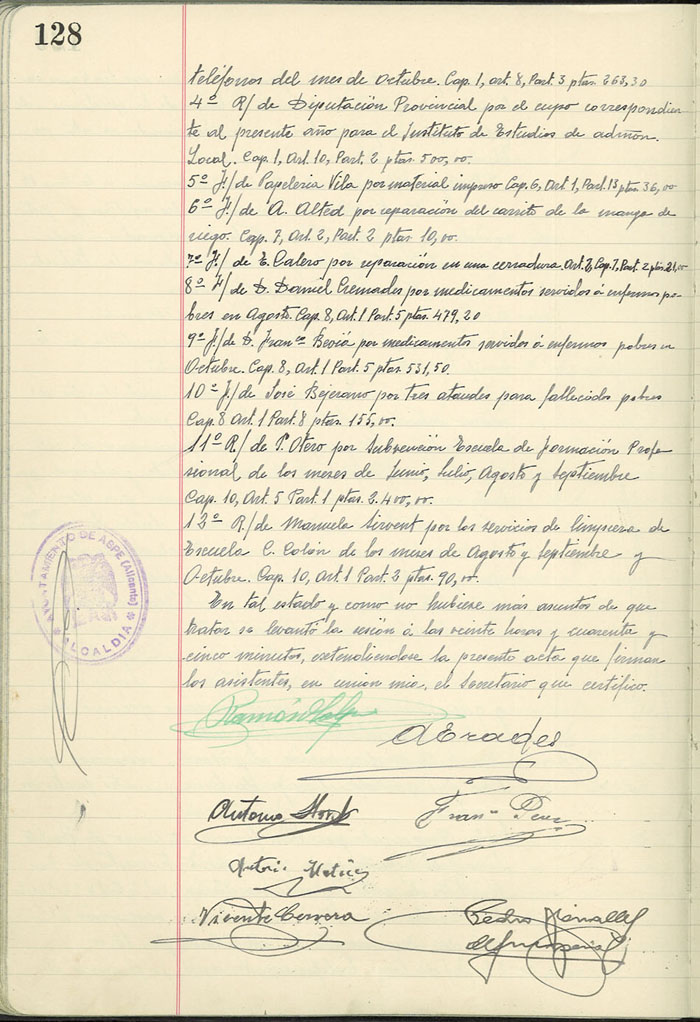 128
teléfonos del mes de Octubre. Cap. 1, art. 8, Part. 3 ptas. 263,30
4º R/ de Diputación Provincial por el cupo correspondien-
te al presente año para el Instituto de Estudios de admón.
Local. Cap. 1, Art. 10, Part. 2 ptas. 500,00.
5º F/ de Papeleria Vila por material impreso Cap. 6, Art. 1, Part. 13 ptas. 36,00
6º F/ de A. Alted por reparación del carrito de la manga de
riego. Cap. 7, Art. 2, Part. 2 ptas. 10,00.
7º F/ de E. Calero por reparación en una cerradura. Art. 2, Cap. 7, Part. 2 ptas. 21,00
8º F/ de D. Daniel Cremades por medicamentos servidos á enfermos po-
bres en Agosto. Cap. 8, Art. 1 Part. 5 ptas. 479,20
9º F/ de D. Franco Beviá por medicamentos servidos á enfermos pobres en
Octubre. Cap. 8, Art. 1 Part. 5 ptas. 531,50.
10º F/ de José Bejerano por tres ataudes para fallecidos pobres
Cap. 8 Art. 1 Part. 8 ptas. 155,00.
11º R/ de P. Otero por Subvención Escuela de Formación Profe-
sional de los meses de Junio, Julio, Agosto y Septiembre
Cap. 10, Art. 5 Part. 1 ptas. 2.400,00.
12º R/ de Manuela Sirvent por los servicios de limpieza de
Escuela C. Colón de los meses de Agosto y Septiembre y
Octubre. Cap. 10, Art. 1 Part. 2 ptas. 90,00.
En tal estado y como no hubiese más asuntos de que
tratar se levantó la sesión á las veinte horas y cuarenta y
cinco minutos, extendiéndose la presente acta que firman
los asistentes, en union mia, el Secretario que certifico.
AYUNTAMIENTO DE ASPE (Alicante)
ALCALDIA
Ramón
AErades
Antonio
Franco Perez
Antonio
Vicente Cervera
Pedro